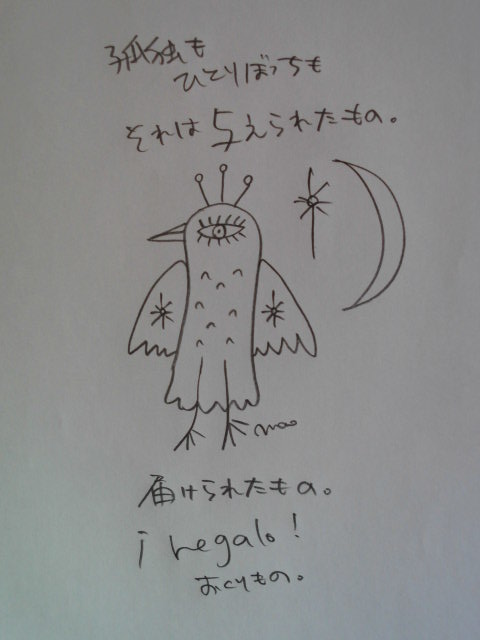 孤独も
ひとりぼっちも
それは与えられたもの。
mao
届けられたもの。
¡ regalo!
おくりもの。